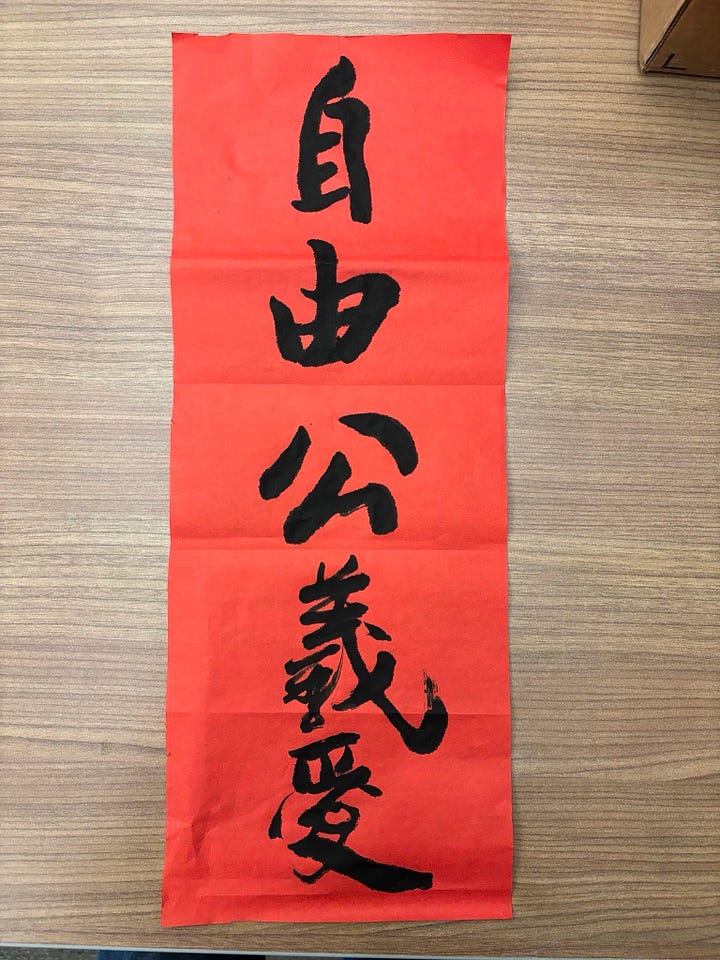 自由公義愛